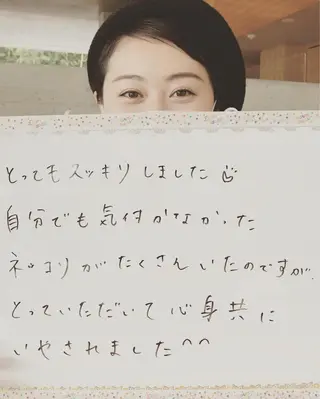 とってもスッキリしました☺
自分でも気付かなかった
ネッコリがたくさんいたのですが、
とっていただいて心身共に
いやされました^^